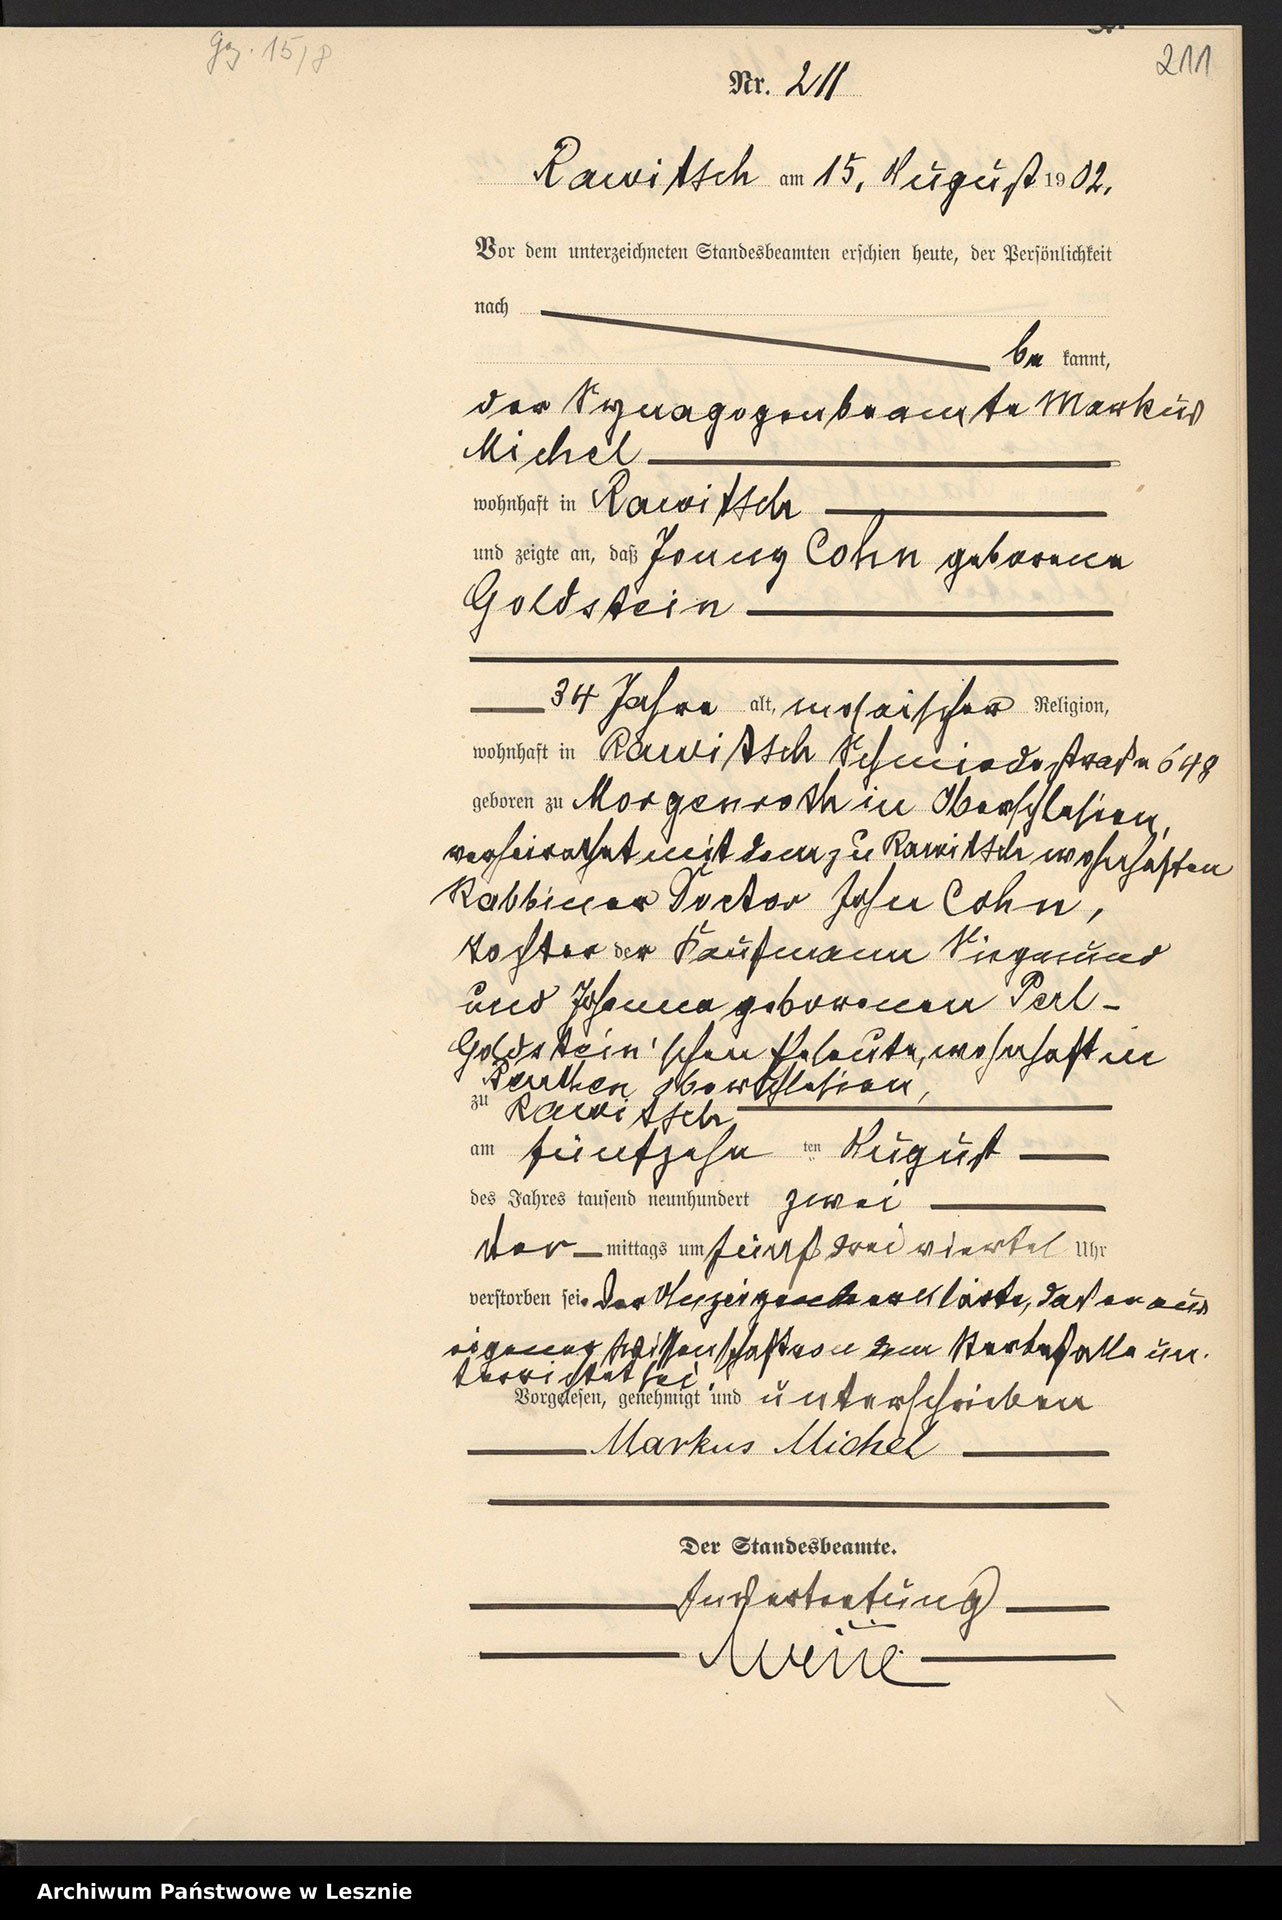 Gz. 15/8
211
Nr. 211
Rawitsch am 15. August 1902.
Vor dem unterzeichneten Standesbeamten erschien heute, der Persönlichkeit
nach
be kannt,
der Synagogenbeamte Markus
Michel
wohnhaft in Rawitsch
und zeigte an, daß Jenny Cohn geborene
Goldstein
34 Jahre alt, mosaischer Religion,
wohnhaft in Rawitsch Schmiedestraße 648
geboren zu Morgenroth in Oberschlesien,
verheirathet mit dem zu Rawitsch wohnhaften
Rabbiner Doctor John Cohn,
Tochter der Kaufmann Siegmund
und Johanna geborenen Perl-
Goldstein'schen Eheleute, wohnhaft in
Beuthen Oberschlesien,
zu Rawitsch
am fünfzehn ten August
des Jahres tausend neunhundert zwei
Vor mittags um fünf drei viertel Uhr
verstorben sei. Der Anzeigende erklärte, daß er aus
eigener Wissenschaft von dem Sterbefalle un-
terrichtet sei.
Vorgelesen, genehmigt und unterschrieben
Markus Michel
Der Standesbeamte.
In Vertretung
Archiwum Państwowe w Lesznie